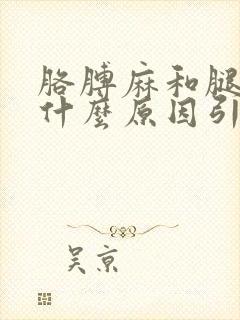 胳膊麻和腿
什麼原因引
吴京